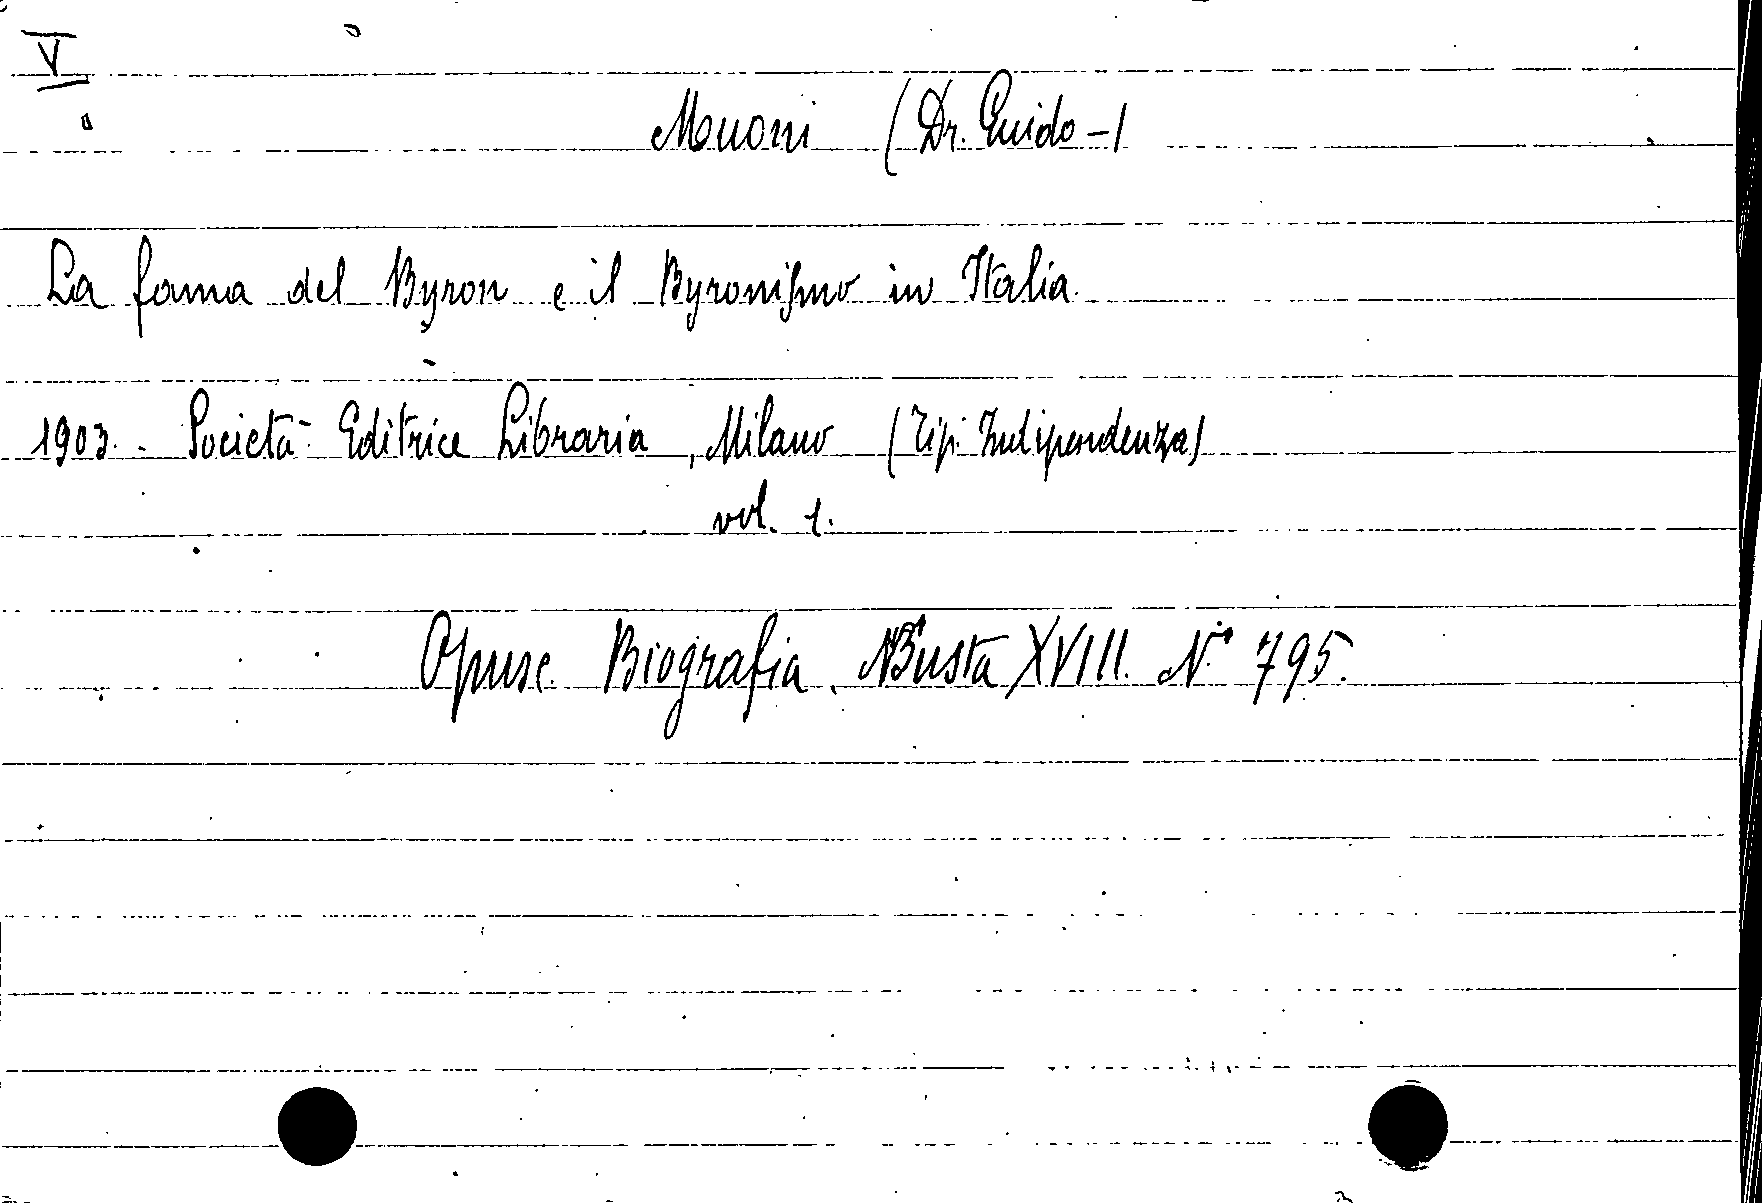 V
Muoni (Dr. Guido -)
La fama del Byron e il Byronismo in Italia.
1903. - Società Editrice Libraria, Milano (Tip. Indipendenza)
vol. 1.
Opusc. Biografia. Busta XVIII. N.° 795.